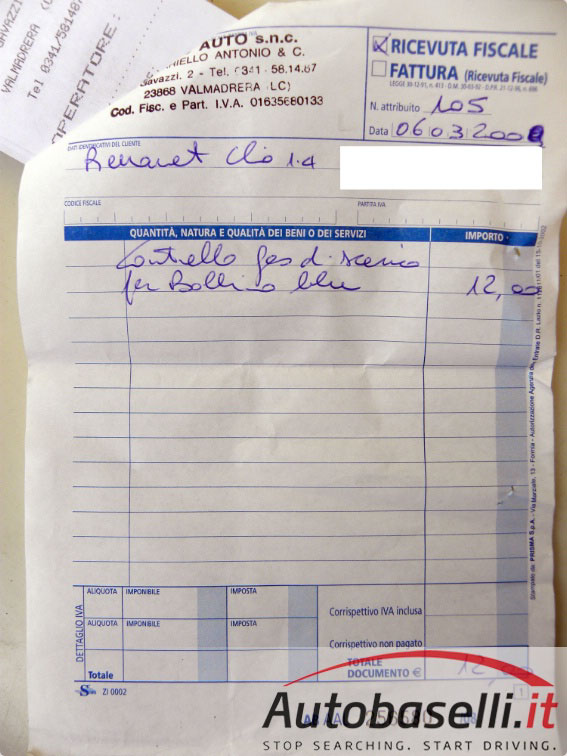 GAVAZZI
VALMADRERA (L
Tel 0341/58148
OPERATORE:
AUTO s.n.c.
NIELLO ANTONIO & C.
Gavazzi, 2 - Tel. 0341 - 58.14.87
23868 VALMADRERA (LC)
Cod. Fisc. e Part. I.V.A. 01635680133
RICEVUTA FISCALE
FATTURA (Ricevuta Fiscale)
N. attribuito 105
Data 06 03 200
DATI IDENTIFICATIVI DEL CLIENTE
Renault Clio 1.4
CODICE FISCALE
PARTITA IVA
QUANTITÀ, NATURA E QUALITÀ DEI BENI O DEI SERVIZI IMPORTO
Controllo gas di scarico
per Bollino blu 12,00
Stampato da: PRISMA S.p.A. - Via Mancale, 13 - Formia - Autorizzazione Agenzia delle Entrate D.R. Lazio
DETTAGLIO IVA
ALIQUOTA IMPONIBILE IMPOSTA
ALIQUOTA IMPONIBILE IMPOSTA
Totale
Corrispettivo IVA inclusa
Corrispettivo non pagato
TOTALE
DOCUMENTO € 12,00
ZI 0002
1
Autobaselli.it
STOP SEARCHING. START DRIVING.